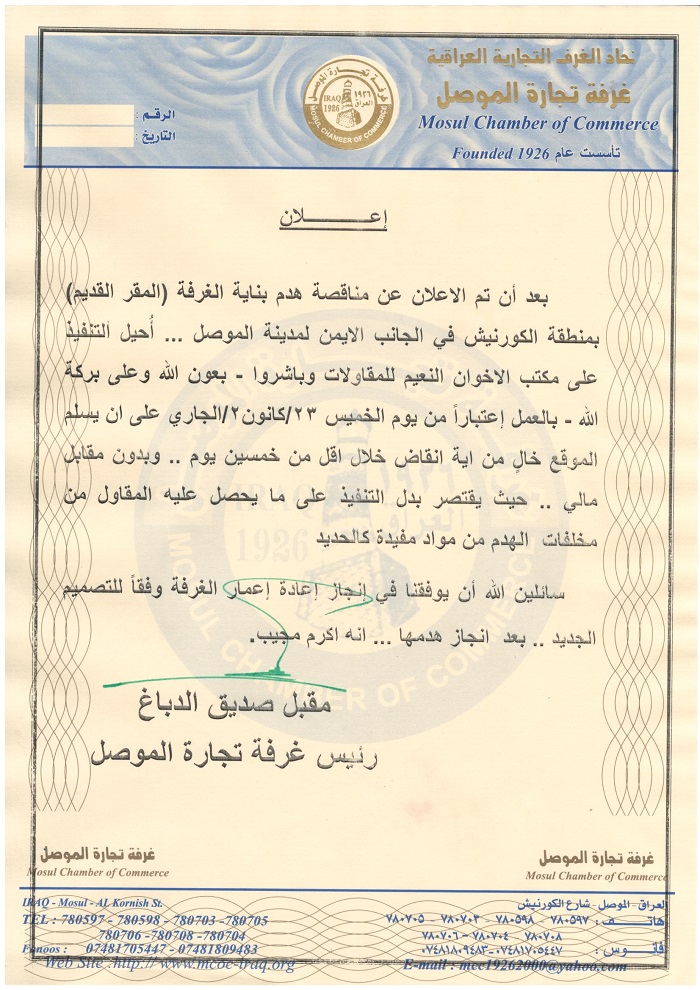 نحاد الغرف التجارية العراقية
غرفة تجارة الموصل
Mosul Chamber of Commerce
Founded 1926 تأسست عام
غرفة تجارة الموصل
IRAQ ١٩٢٦
1926 العراق
MOSUL CHAMBER OF COMMERCE
الرقم :
التاريخ :
إعـــــــلان
بعد أن تم الاعلان عن مناقصة هدم بناية الغرفة (المقر القديم)
بمنطقة الكورنيش في الجانب الايمن لمدينة الموصل ... أُحيل التنفيذ
على مكتب الاخوان النعيم للمقاولات وباشروا - بعون الله وعلى بركة
الله - بالعمل إعتباراً من يوم الخميس ٢٣/كانون٢/الجاري على ان يسلم
الموقع خالٍ من اية انقاض خلال اقل من خمسين يوم .. وبدون مقابل
مالي .. حيث يقتصر بدل التنفيذ على ما يحصل عليه المقاول من
مخلفات الهدم من مواد مفيدة كالحديد
سائلين الله أن يوفقنا في إنجاز إعادة إعمار الغرفة وفقاً للتصميم
الجديد .. بعد انجاز هدمها ... انه اكرم مجيب.
مقبل صديق الدباغ
رئيس غرفة تجارة الموصل
غرفة تجارة الموصل
Mosul Chamber of Commerce
غرفة تجارة الموصل
Mosul Chamber of Commerce
العراق - الموصل - شارع الكورنيش
هاتف : ٧٨٠٥٩٧ ٧٨٠٥٩٨ ٧٨٠٧٠٣ ٧٨٠٧٠٥
٧٨٠٧٠٨ ٧٨٠٧٠٤ ٧٨٠٧٠٦
فانوس : ٠٧٤٨١٧٠٥٤٤٧-٠٧٤٨١٨٠٩٤٨٣
E-mail : mcc19262000@yahoo.com
IRAQ - Mosul - AL Kornish St.
TEL : 780597 - 780598 - 780703 -780705
780706 -780708 -780704
Fanoos : 07481705447 - 07481809483
Web Site :http://www.mcoc-iraq.org